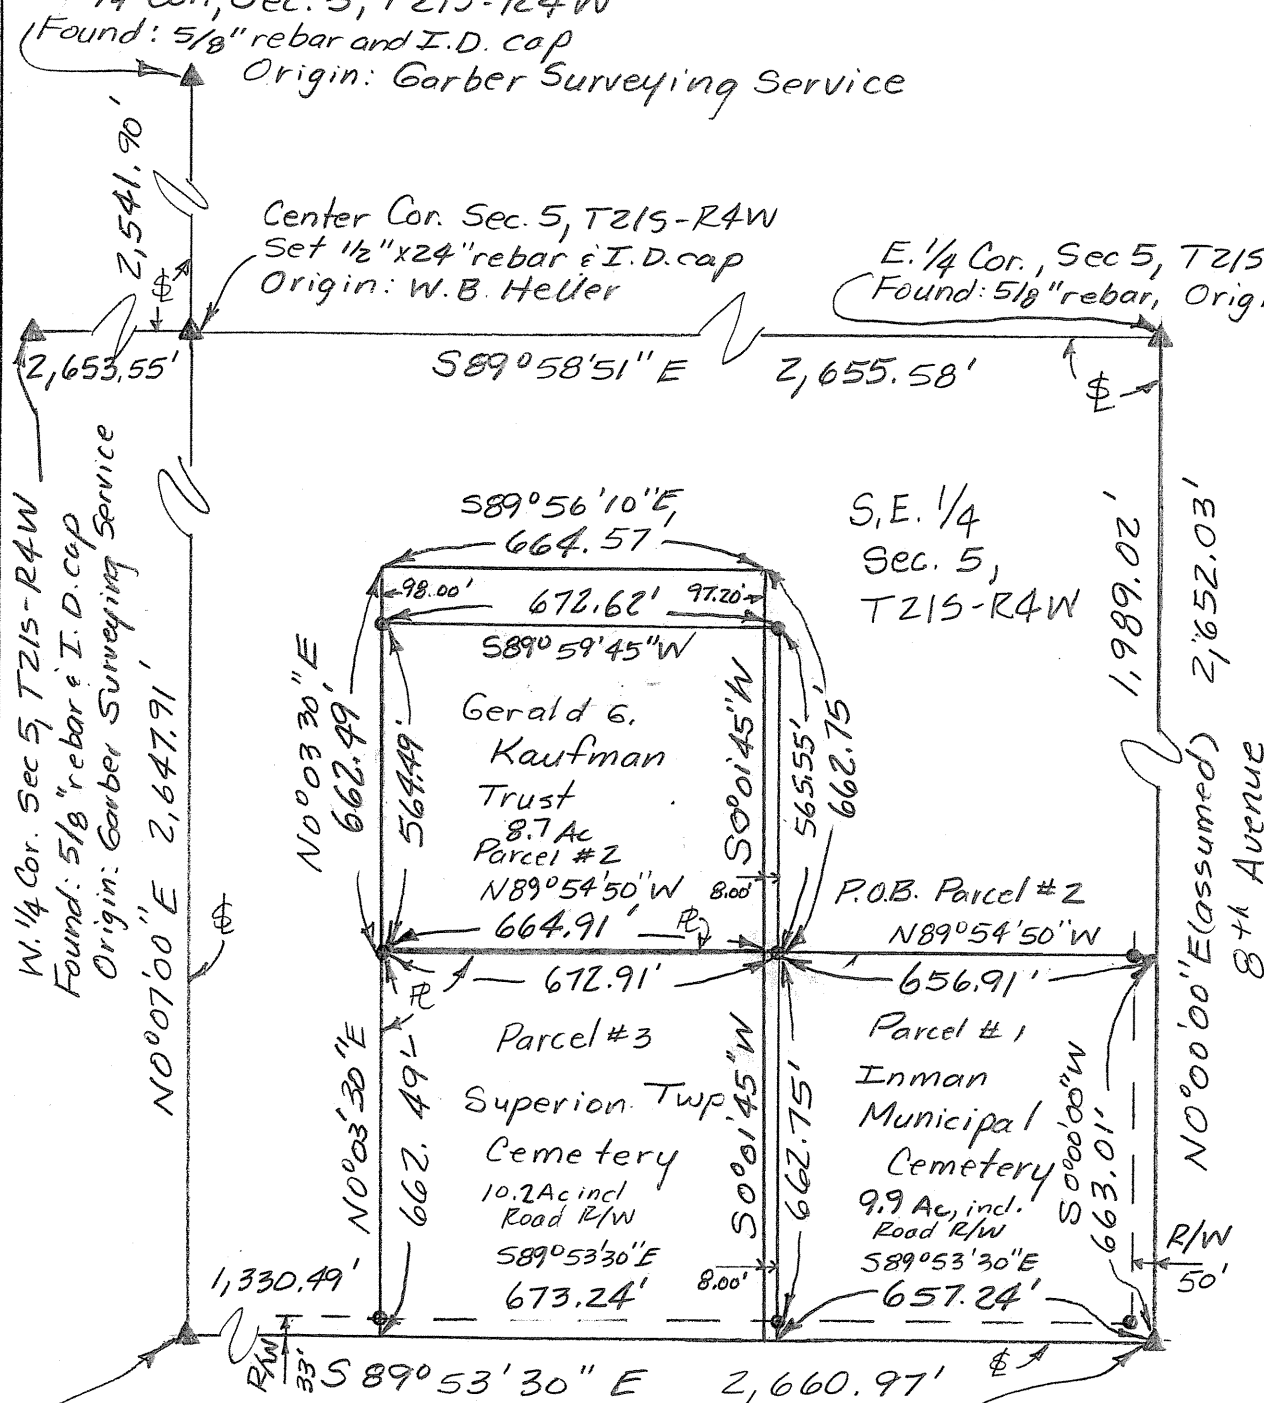 1/4 Cor., Sec. 5, T21S-R4W
Found: 5/8" rebar and I.D. cap
Origin: Garber Surveying Service
2,541.90'
Center Cor. Sec. 5, T21S-R4W
Set 1/2"x24" rebar & I.D. cap
Origin: W.B. Heller
E. 1/4 Cor., Sec 5, T21S
Found: 5/8" rebar, Orig
2,653.55'
S89°58'51" E 2,655.58'
W. 1/4 Cor. Sec 5, T21S-R4W
Found: 5/8" rebar & I.D. cap
Origin: Garber Surveying Service
N0°07'00" E 2,647.91'
S89°56'10"E,
664.57'
98.00' 97.20'
672.62'
S89°59'45"W
S.E. 1/4
Sec. 5,
T21S-R4W
1,989.02'
2,652.03'
N0°00'00"E (assumed)
8th Avenue
N0°03 30" E
662.49'
564.49'
Gerald G.
Kaufman
Trust
8.7 Ac
Parcel #2
N89°54'50"W
664.91'
S0°01'45"W
8.00'
565.55'
662.75'
P.O.B. Parcel #2
N89°54'50"W
672.91'
656.91'
N0°03'30"E
662.49'
Parcel #3
Superion Twp
Cemetery
10.2 Ac incl
Road R/W
S89°53'30"E
673.24'
S0°01'45"W
8.00'
662.75'
Parcel #1
Inman
Municipal
Cemetery
9.9 Ac, incl.
Road R/W
S89°53'30"E
657.24'
S0°00'00"W
663.01'
R/W
50'
1,330.49'
R/W
33'
S 89°53'30" E 2,660.97'